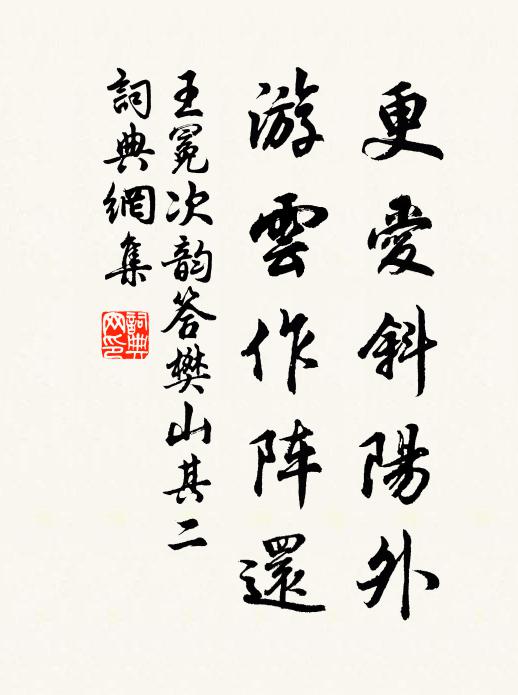 更愛斜陽外
游雲作阵還
王冕次韵答樊山其二
詞典網集
詞典網印